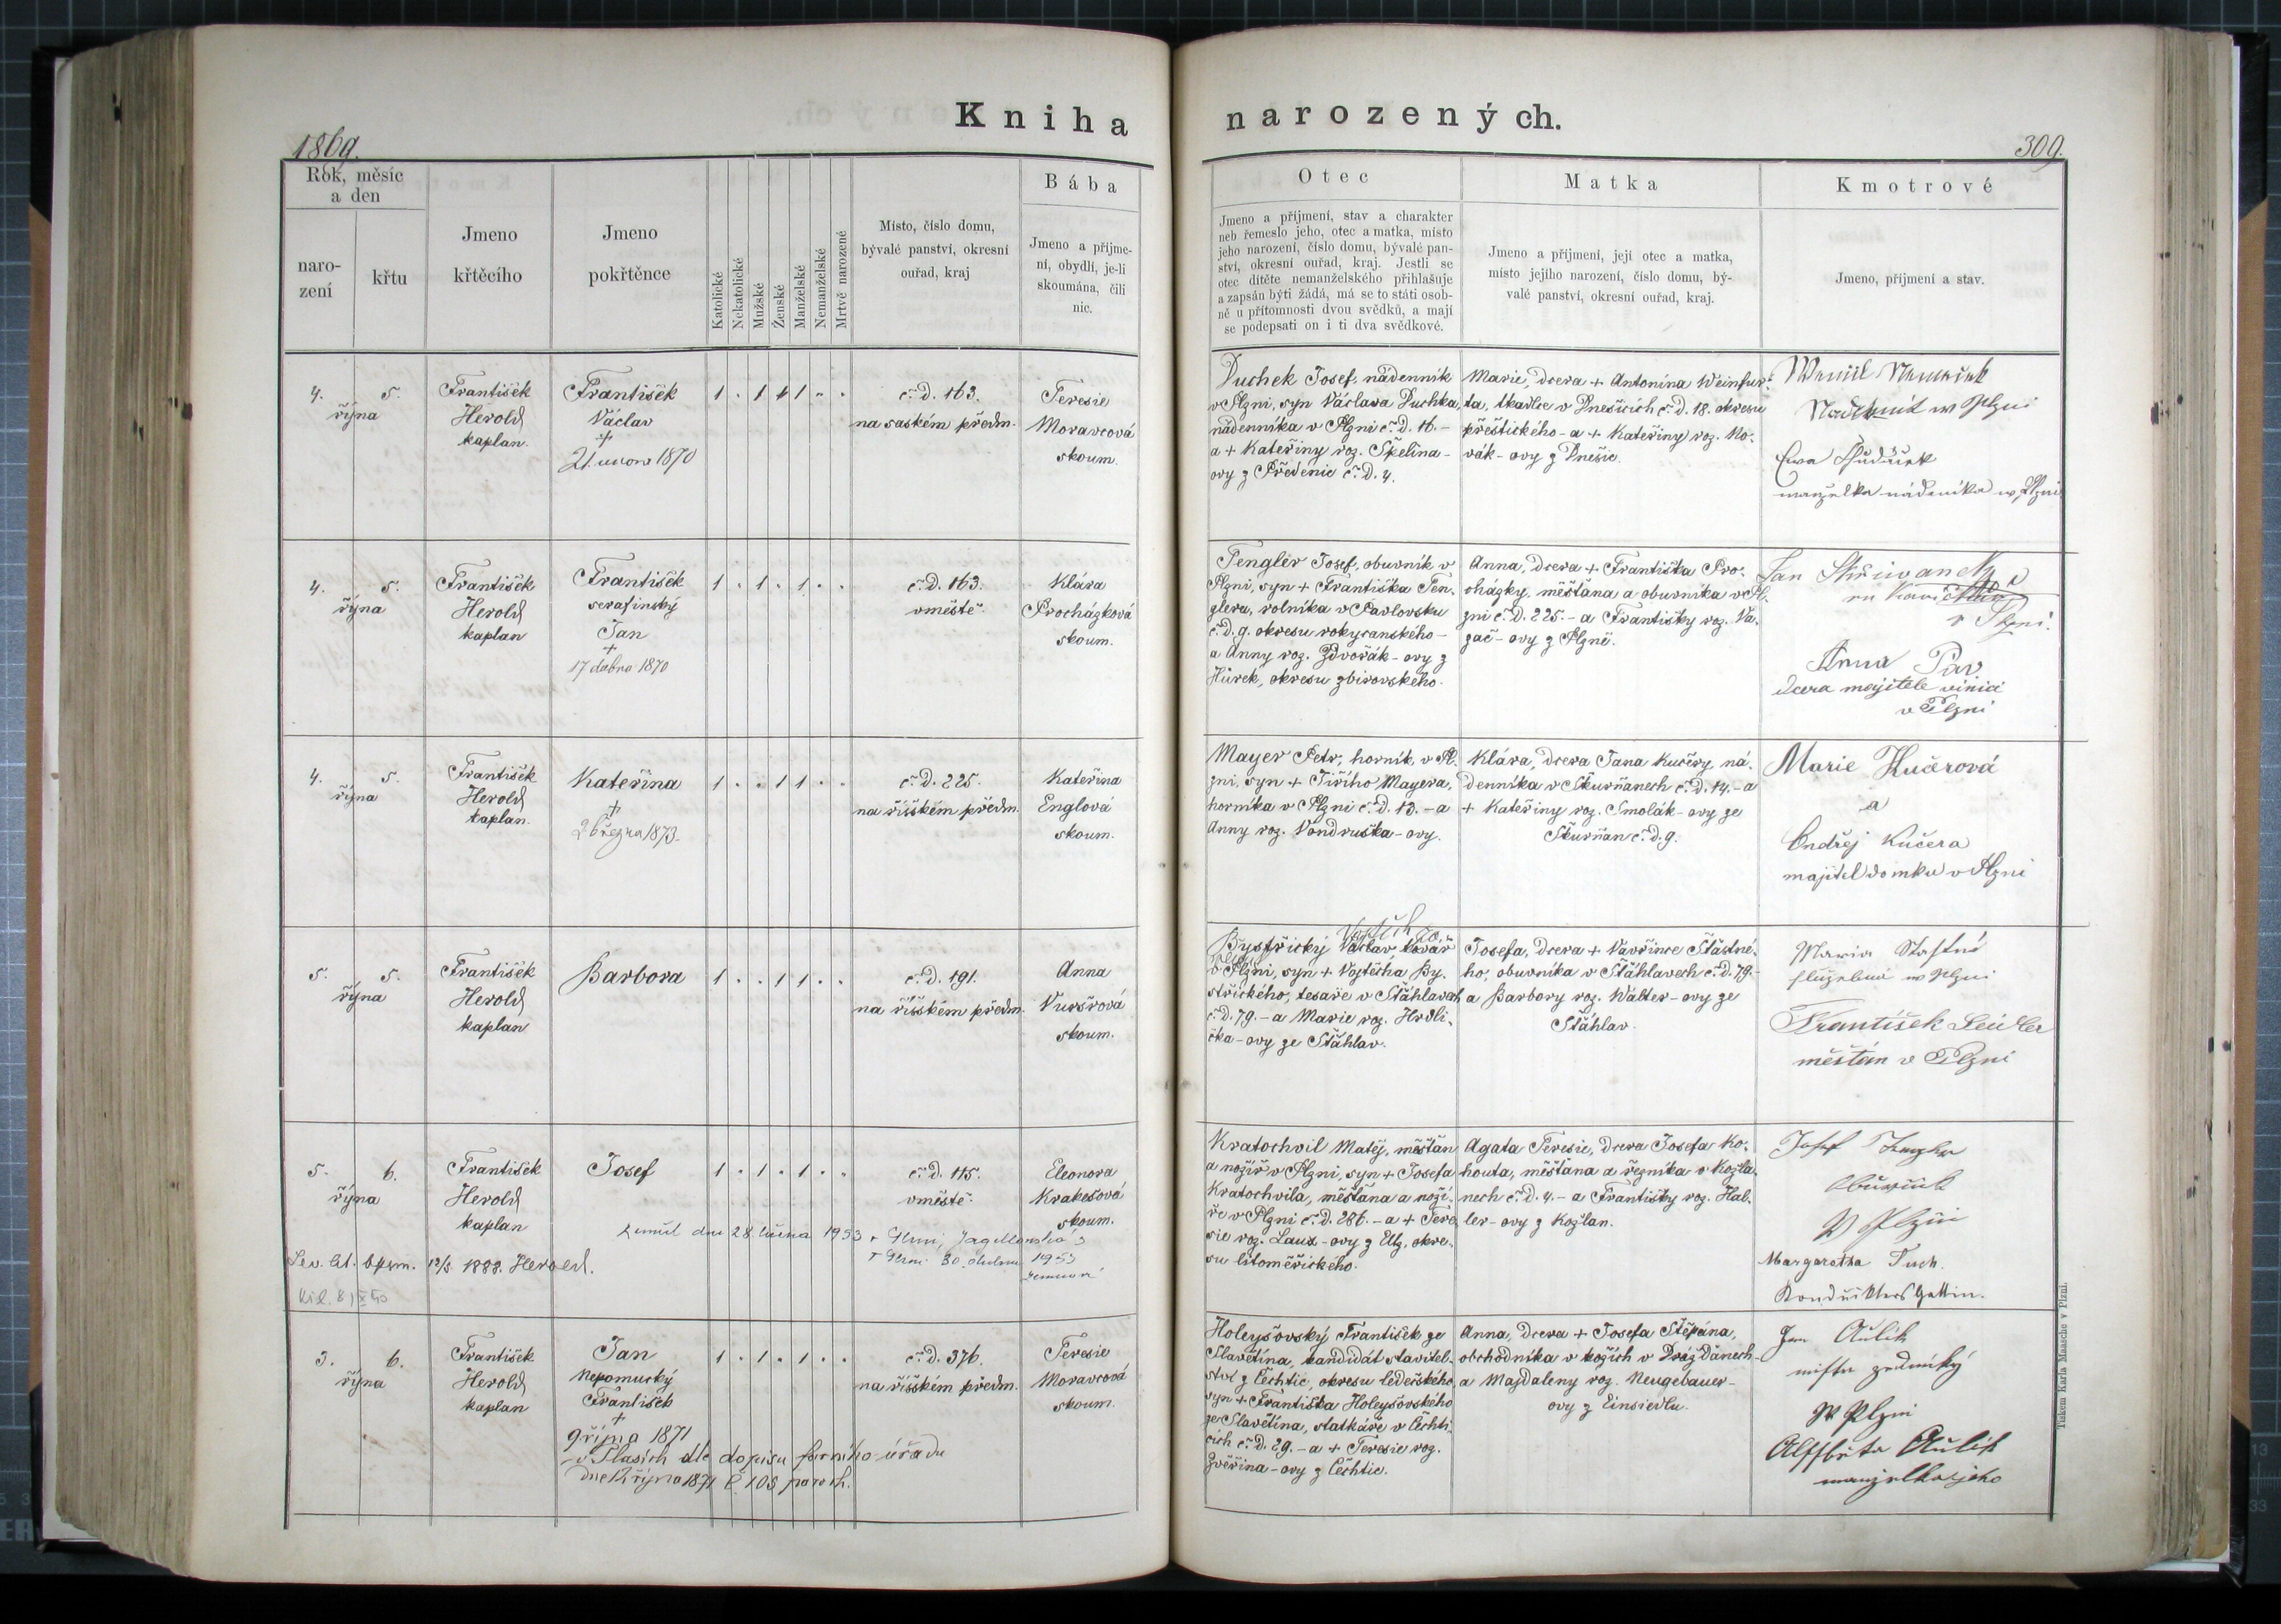 Kniha narozených.
1869.
309.
Rok, měsíc
a den
naro-
zení
křtu
Jmeno
křtěcího
Jmeno
pokřtěnce
Katolické
Nekatolické
Mužské
Ženské
Manželské
Nemanželské
Mrtvě narozené
Místo, číslo domu,
bývalé panství, okresní
ouřad, kraj
Bába
Jmeno a příjme-
ní, obydlí, je-li
skoumána, čili
nic.
Otec
Jmeno a příjmení, stav a charakter
neb řemeslo jeho, otec a matka, místo
jeho narození, číslo domu, bývalé pan-
ství, okresní ouřad, kraj. Jestli se
otec dítěte nemanželského přihlašuje
a zapsán býti žádá, má se to státi osob-
ně u přítomnosti dvou svědků, a mají
se podepsati on i ti dva svědkové.
Matka
Jmeno a příjmení, její otec a matka,
místo jejího narození, číslo domu, bý-
valé panství, okresní ouřad, kraj.
Kmotrové
Jmeno, příjmení a stav.
4. 5.
října
František
Herold
kaplan.
František
Václav
+
21. února 1870
1 . 1 1 1 . .
č. D. 163.
na saském předm.
Teresie
Moravcová
skoum.
Duchek Josef, nádenník
v Plzni, syn Václava Duchka,
nádenníka v Plzni č. D. 16. -
a + Kateřiny roz. Špelina-
ovy z Předenic č. D. 4.
Marie, dcera + Antonína Weinfur-
ta, tkadlce v Dnešicích č. D. 18. okresu
přeštického - a + Kateřiny roz. No-
vák - ovy z Dnešic.
w Plzni
manželka nádeníka w Plzni
4. 5.
října
František
Herold
kaplan
František
serafinský
Jan
+
17 dubna 1870
1 . 1 . 1 . .
č. D. 163.
v městě.
Klára
Procházková
skoum.
Tengler Josef, obuvník v
Plzni, syn + Františka Ten-
glera, rolníka v Pavlovsku
č. D. 9. okresu rokycanského -
a Anny roz. Zdvořák - ovy z
Hůrek, okresu zbirovského.
Anna, dcera + Františka Pro-
cházky, měšťana a obuvníka v Pl-
zni č. D. 225. - a Františky roz. Va-
zač - ovy z Plzně.
Jan Skřiwanek
v Plzni.
Anna Pav
dcera majitele vinici
v Plzni
4. 5.
října
František
Herold
kaplan.
Kateřina
+
2 března 1873.
1 . . 1 1 . .
č. D. 225.
na říšském předm.
Kateřina
Englová
skoum.
Mayer Petr, horník v Pl-
zni, syn + Jiřího Mayera,
horníka v Plzni č. D. 13. - a
Anny roz. Vondruška - ovy.
Klára, dcera Jana Kučery, ná-
denníka v Skurňanech č. D. 14. - a
+ Kateřiny roz. Smolák - ovy ze
Skurňan č. D. 9.
Marie Kučerová
a
Ondřej Kučera
majitel domku v Plzni
5. 5.
října
František
Herold
kaplan
Barbora
1 . . 1 1 . .
č. D. 191.
na říšském předm.
Anna
Vursřová
skoum.
Bystřický Václav kovář
v Plzni, syn + Vojtěcha By-
střického, tesaře v Šťáhlavech
č. D. 79. - a Marie roz. Hrdli-
čka - ovy ze Šťáhlav.
Josefa, dcera + Vavřince Šťastné-
ho, obuvníka v Šťáhlavech č. D. 79. -
a Barbory roz. Walter - ovy ze
Šťáhlav.
w Plzni
František Seidler
měšťan v Plzni
5. 6.
října
František
Herold
kaplan
Josef
1 . 1 . 1 . .
č. D. 115.
v městě.
Eleonora
Krakešová
skoum.
Kratochvil Matěj, měšťan
a nožíř v Plzni, syn + Josefa
Kratochvila, měšťana a noží-
ře v Plzni č. D. 286. - a + Tere-
sie roz. Laux - ovy z Elz, okre-
su litoměřického.
Agata Teresie, dcera Josefa Ko-
houta, měšťana a řezníka v Kožla-
nech č. D. 4. - a Františky roz. Hal-
ler - ovy z Kožlan.
Josef
V Plzni
Margaretha Tuch.
Gattin.
1953
1888. Herold.
3. 6.
října
František
Herold
kaplan
Jan
Nepomucký
František
+
9 října 1871
v Plasích dle dopisu farního úřadu
dne 12 října 1871 č. 105 paroch.
1 . 1 . 1 . .
č. D. 376.
na říšském předm.
Teresie
Moravcová
skoum.
Holeyšovský František ze
Slavětína, kandidát stavitel-
ství z Čechtic, okresu ledečského,
syn + Františka Holeyšovského
ze Slavětína, statkáře v Čechti-
cích č. D. 29. - a + Teresie roz.
Zvěřina - ovy z Čechtic.
Anna, dcera + Josefa Štěpána,
obchodníka v kožích v Dráždanech -
a Majdaleny roz. Neugebauer -
ovy z Einsiedlu.
Jan Aulik
w Plzni
Aulik
manželka jeho
Tiskem Karla Maasche v Plzni.